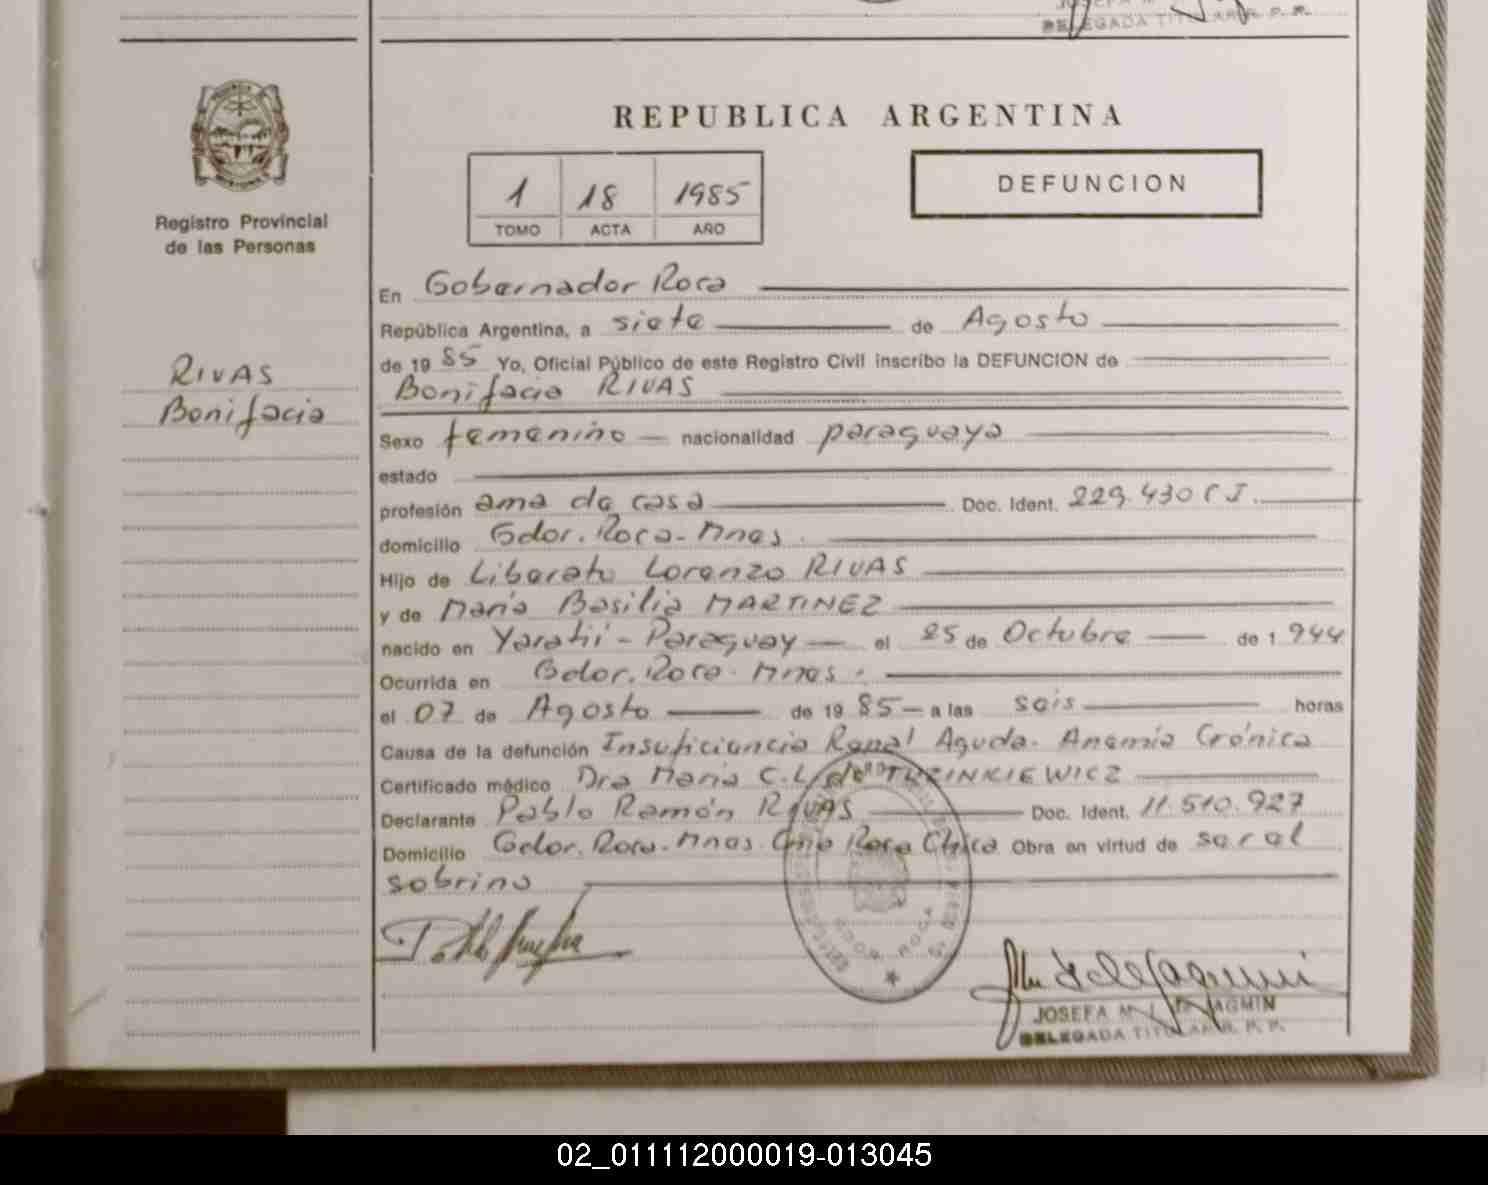 DELEGADA TITULAR R. P. P.
REPUBLICA ARGENTINA
1 18 1985
TOMO ACTA AÑO
DEFUNCION
Registro Provincial
de las Personas
RIVAS
Bonifacia
En Gobernador Roca
República Argentina, a siete de Agosto
de 19 85 Yo, Oficial Público de este Registro Civil inscribo la DEFUNCION de
Bonifacia RIVAS
Sexo femenino nacionalidad paraguaya
estado
profesión ama de casa Doc. Ident. 229.430 C I.
domicilio Gdor. Roca - Mnes.
Hijo de Liberato Lorenzo RIVAS
y de María Basilia MARTINEZ
nacido en Yaratií - Paraguay el 25 de Octubre de 1 944
Ocurrida en Gdor. Roca - Mnes.
el 07 de Agosto de 19 85 a las seis horas
Causa de la defunción Insuficiencia Renal Aguda - Anemia Crónica
Certificado médico Dra María C. L. de TURINKIEWICZ
Declarante Pablo Ramón RIVAS Doc. Ident. 11.510.927
Domicilio Gdor. Roca - Mnes. Cnia Roca Chica Obra en virtud de ser el
sobrino
GDOR. ROCA
JOSEFA M. L. DE JAGMIN
DELEGADA TITULAR R. P. P.
02_011112000019-013045